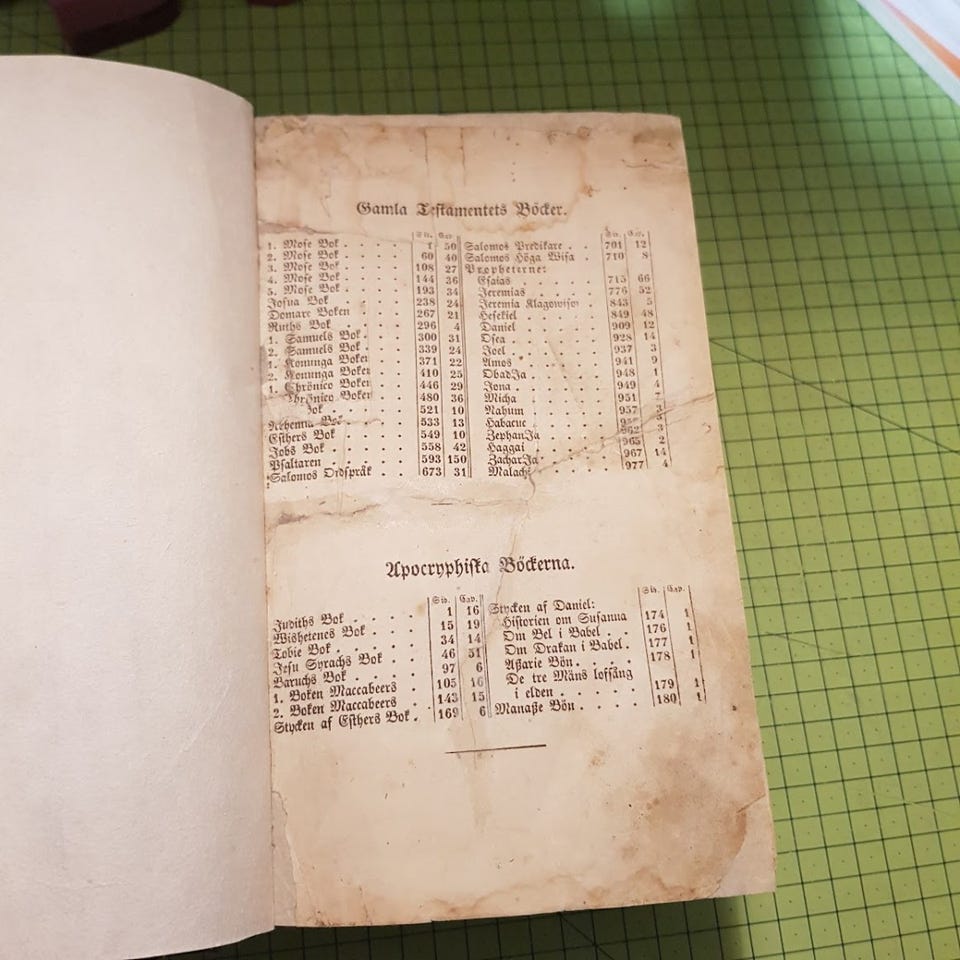 Gamla Testamentets Böcker.
Sid. Cap.
1. Mose Bok . . . . 1 50
2. Mose Bok . . . . 60 40
3. Mose Bok . . . . 108 27
4. Mose Bok . . . . 144 36
5. Mose Bok . . . . 193 34
Josua Bok . . . . 238 24
Domare Boken . . . 267 21
Ruths Bok . . . . 296 4
1. Samuels Bok . . . 300 31
2. Samuels Bok . . . 339 24
1. Konunga Boken . . 371 22
2. Konunga Boken . . 410 25
1. Chrönico Boken . . 446 29
Chrönico Boken . . 480 36
Bok . . . . 521 10
Nehemia Bok . . . 533 13
Esthers Bok . . . . 549 10
Jobs Bok . . . . 558 42
Psaltaren . . . . 593 150
Salomos Ordspråk . . 673 31
Sid. Cap.
Salomos Predikare . . 701 12
Salomos Höga Wisa . 710 8
Propheterne:
Esaias . . . . . 715 66
Jeremias . . . . 776 52
Jeremia Klagowisor . 843 5
Hesekiel . . . . 849 48
Daniel . . . . . 909 12
Osea . . . . . 928 14
Joel . . . . . 937 3
Amos . . . . . 941 9
ObadJa . . . . 948 1
Jona . . . . . 949 4
Micha . . . . . 951 7
Nahum . . . . . 957 3
Habacuc . . . . 3
ZephanJa . . . . 962 3
Haggai . . . . . 965 2
ZacharJa . . . . 967 14
Malachi . . . . 977 4
Apocryphiska Böckerna.
Sid. Cap.
Judiths Bok . . . . 1 16
Wishetenes Bok . . . 15 19
Tobie Bok . . . . 34 14
Jesu Syrachs Bok . . 46 51
Baruchs Bok . . . 97 6
1. Boken Maccabeers . 105 16
2. Boken Maccabeers . 143 15
Stycken af Esthers Bok . 169 6
Sid. Cap.
Stycken af Daniel:
Historien om Susanna 174 1
Om Bel i Babel . . 176 1
Om Drakan i Babel . 177 1
Aßarie Bön . . . . 178 1
De tre Mäns loffång
i elden . . . . . 179 1
Manaße Bön . . . . 180 1